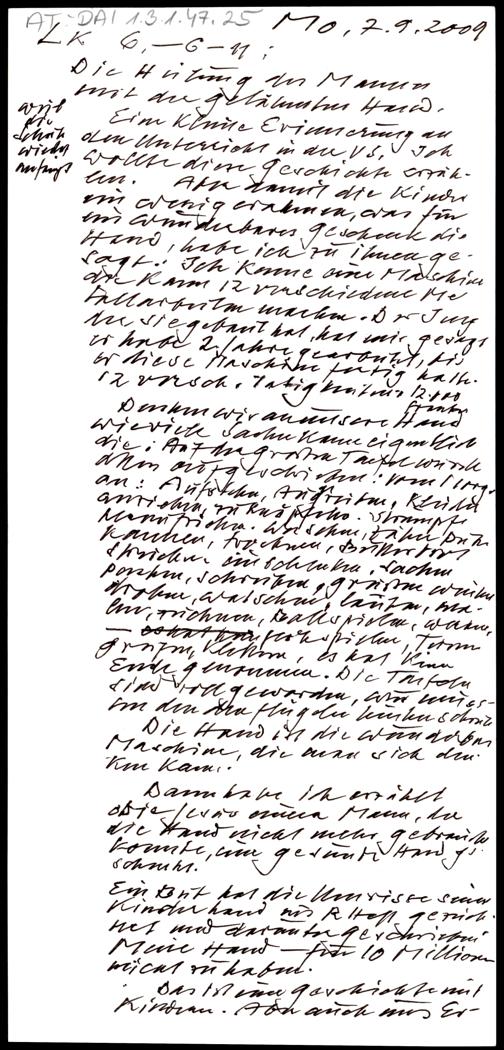 AT-DAI 1.3.1.47.25
Mo, 7.9.2009
LK 6,-6-11:
Die Heilung des Mannes
mit der gelähmten Hand.
weil
die
Schule
wieder
anfängt
Eine kleine Erinnerung an
den Unterricht in der VS. Ich
wollte diese Geschichte erzäh-
len. Aber damit die Kinder
ein wenig erahnen, was für
ein wunderbares Geschenk die
Hand, habe ich zu ihnen ge-
sagt: Ich kenne eine Maschine
die kann 12 verschiedene Me
tallarbeiten machen. Der Ing
der sie gebaut hat, hat mir gesagt
er habe 2 Jahre gearbeitet, bis
er diese Maschine fertig hatte.
12 versch. Tätigkeiten 12.000
Stunden
Denken wir an unsere Hand
wieviele Sachen kann eigentlich
die: Auf der großen Tafel wurde
alles aufgeschrieben: vom
an: Aufstehen, Kleider
anziehen, zuknöpfen. Strümpfe
Waschen, Zähne Putzen
kämmen, trocknen, Butterbrot
streichen einschenken, Sachen
packen, schreiben, grüßen winken
drohen, watschen, läuten, ma-
len, zeichnen, Ballspielen,
spielen, Turnen
greifen, klettern, es hat kein
Ende genommen. Die Tafeln
sind voll geworden, wir muss-
ten den Flügeln hinten schreiben
Die Hand ist die wunderbare
Maschine, die man sich den-
ken kann.
Dann habe ich erzählt
wie Jesus einem Mann, der
die Hand nicht mehr gebrauchen
konnte, eine gesunde Hand ge-
schenkt.
Ein Bub hat die Umrisse seiner
Kinderhand ins R Heft gezeich-
net und darunter geschrieben
Meine Hand – für 10 Millionen
nicht zu haben.
Das ist eine Geschichte mit
Kindern. Aber auch uns Er-